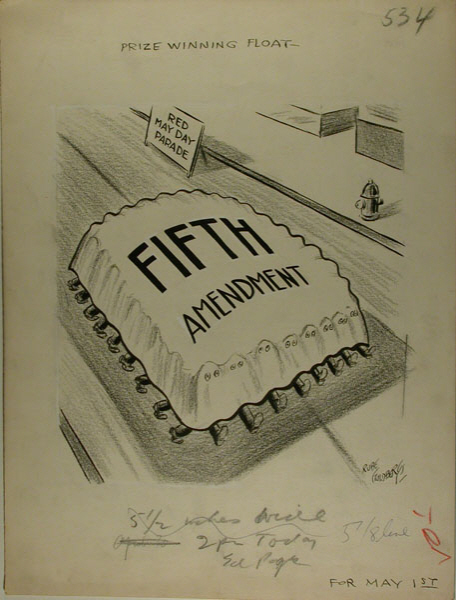 534
PRIZE WINNING FLOAT—
RED
MAY DAY
PARADE
FIFTH
AMENDMENT
RUBE
GOLDBERG
5 1/2 wide
2 Today
Ed Page
FOR MAY 1ST